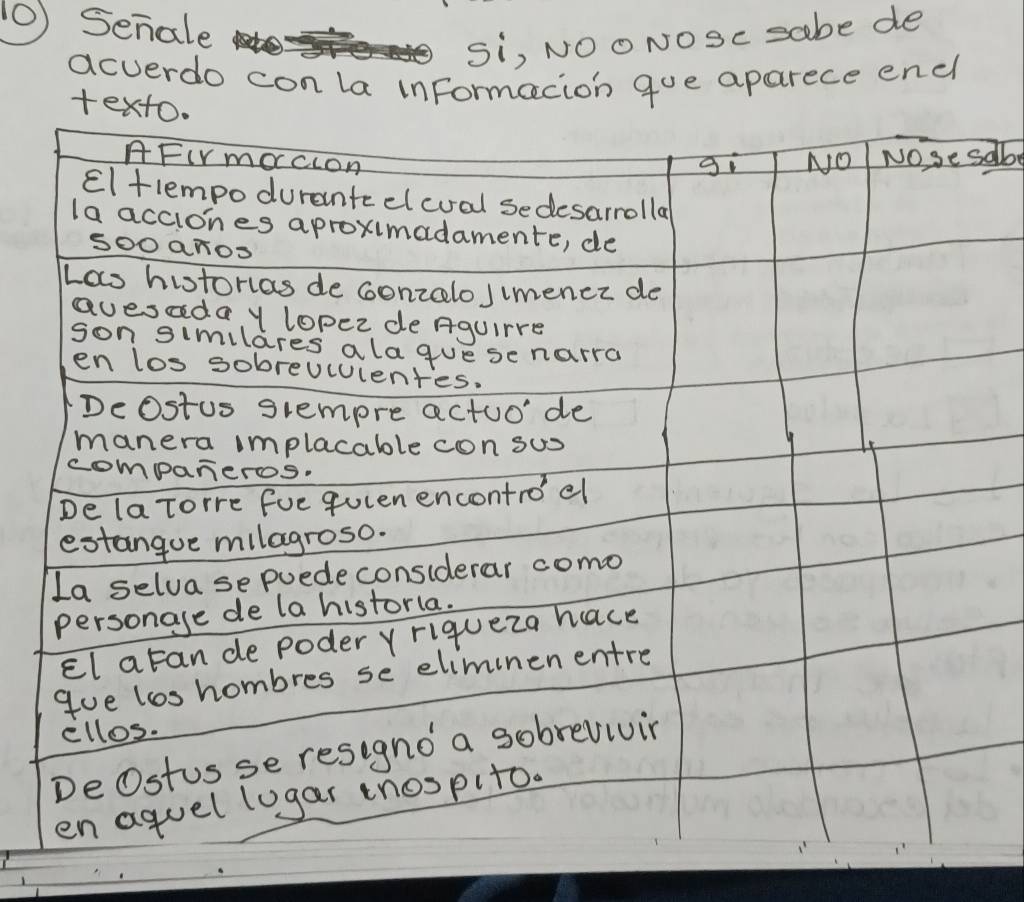 10) Señale si, NO O NO se sabe de
acuerdo con la inFormación que aparece en el
texto.
AFirmaccion si NO NO se sabe
El tiempo durante el cual se desarrolla
la acción es aproximadamente, de
500 años
Las historias de Gonzalo Jimenez de
quesada y lopez de Aguirre
son similares a la que se narra
en los sobrevivientes.
De Ostus siempre actuó de
manera implacable con sus
compañeros.
De la Torre fue quien encontró el
estanque milagroso.
La selva se puede considerar como
personaje de la historia.
El aFan de poder y riqueza hace
que los hombres se eliminen entre
ellos.
De Ostus se resignó a sobrevivir
en aquel lugar inospito.